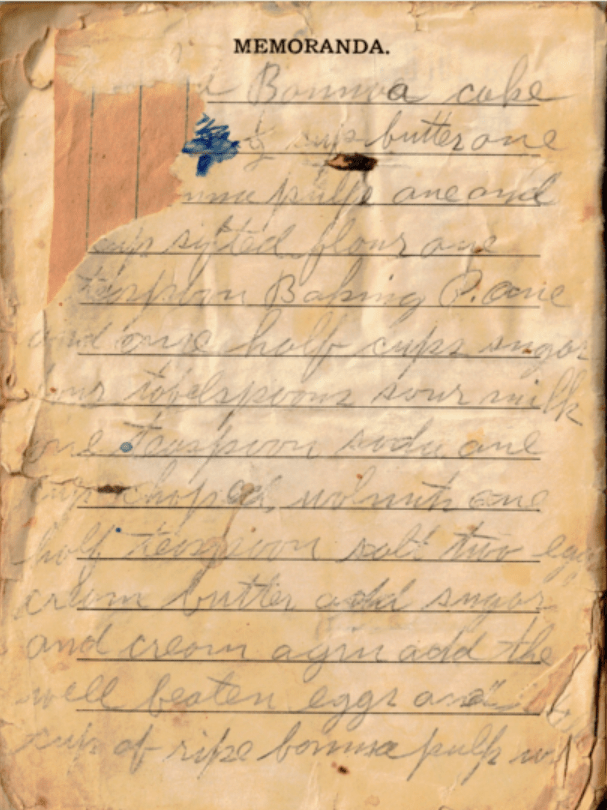 MEMORANDA.
Bonnna cake
½ cup butter one
nna pulp one and
cup sifted flour one
teaspoon Baking P. one
and one half cups sugar
four tabelspoons sour milk
one teaspoon soda one
cup choped wolnuts one
half teaspoon salt two eggs
cream butter add sugar
and cream agin add the
well beaten eggs and
cup of ripe bonnna pulp